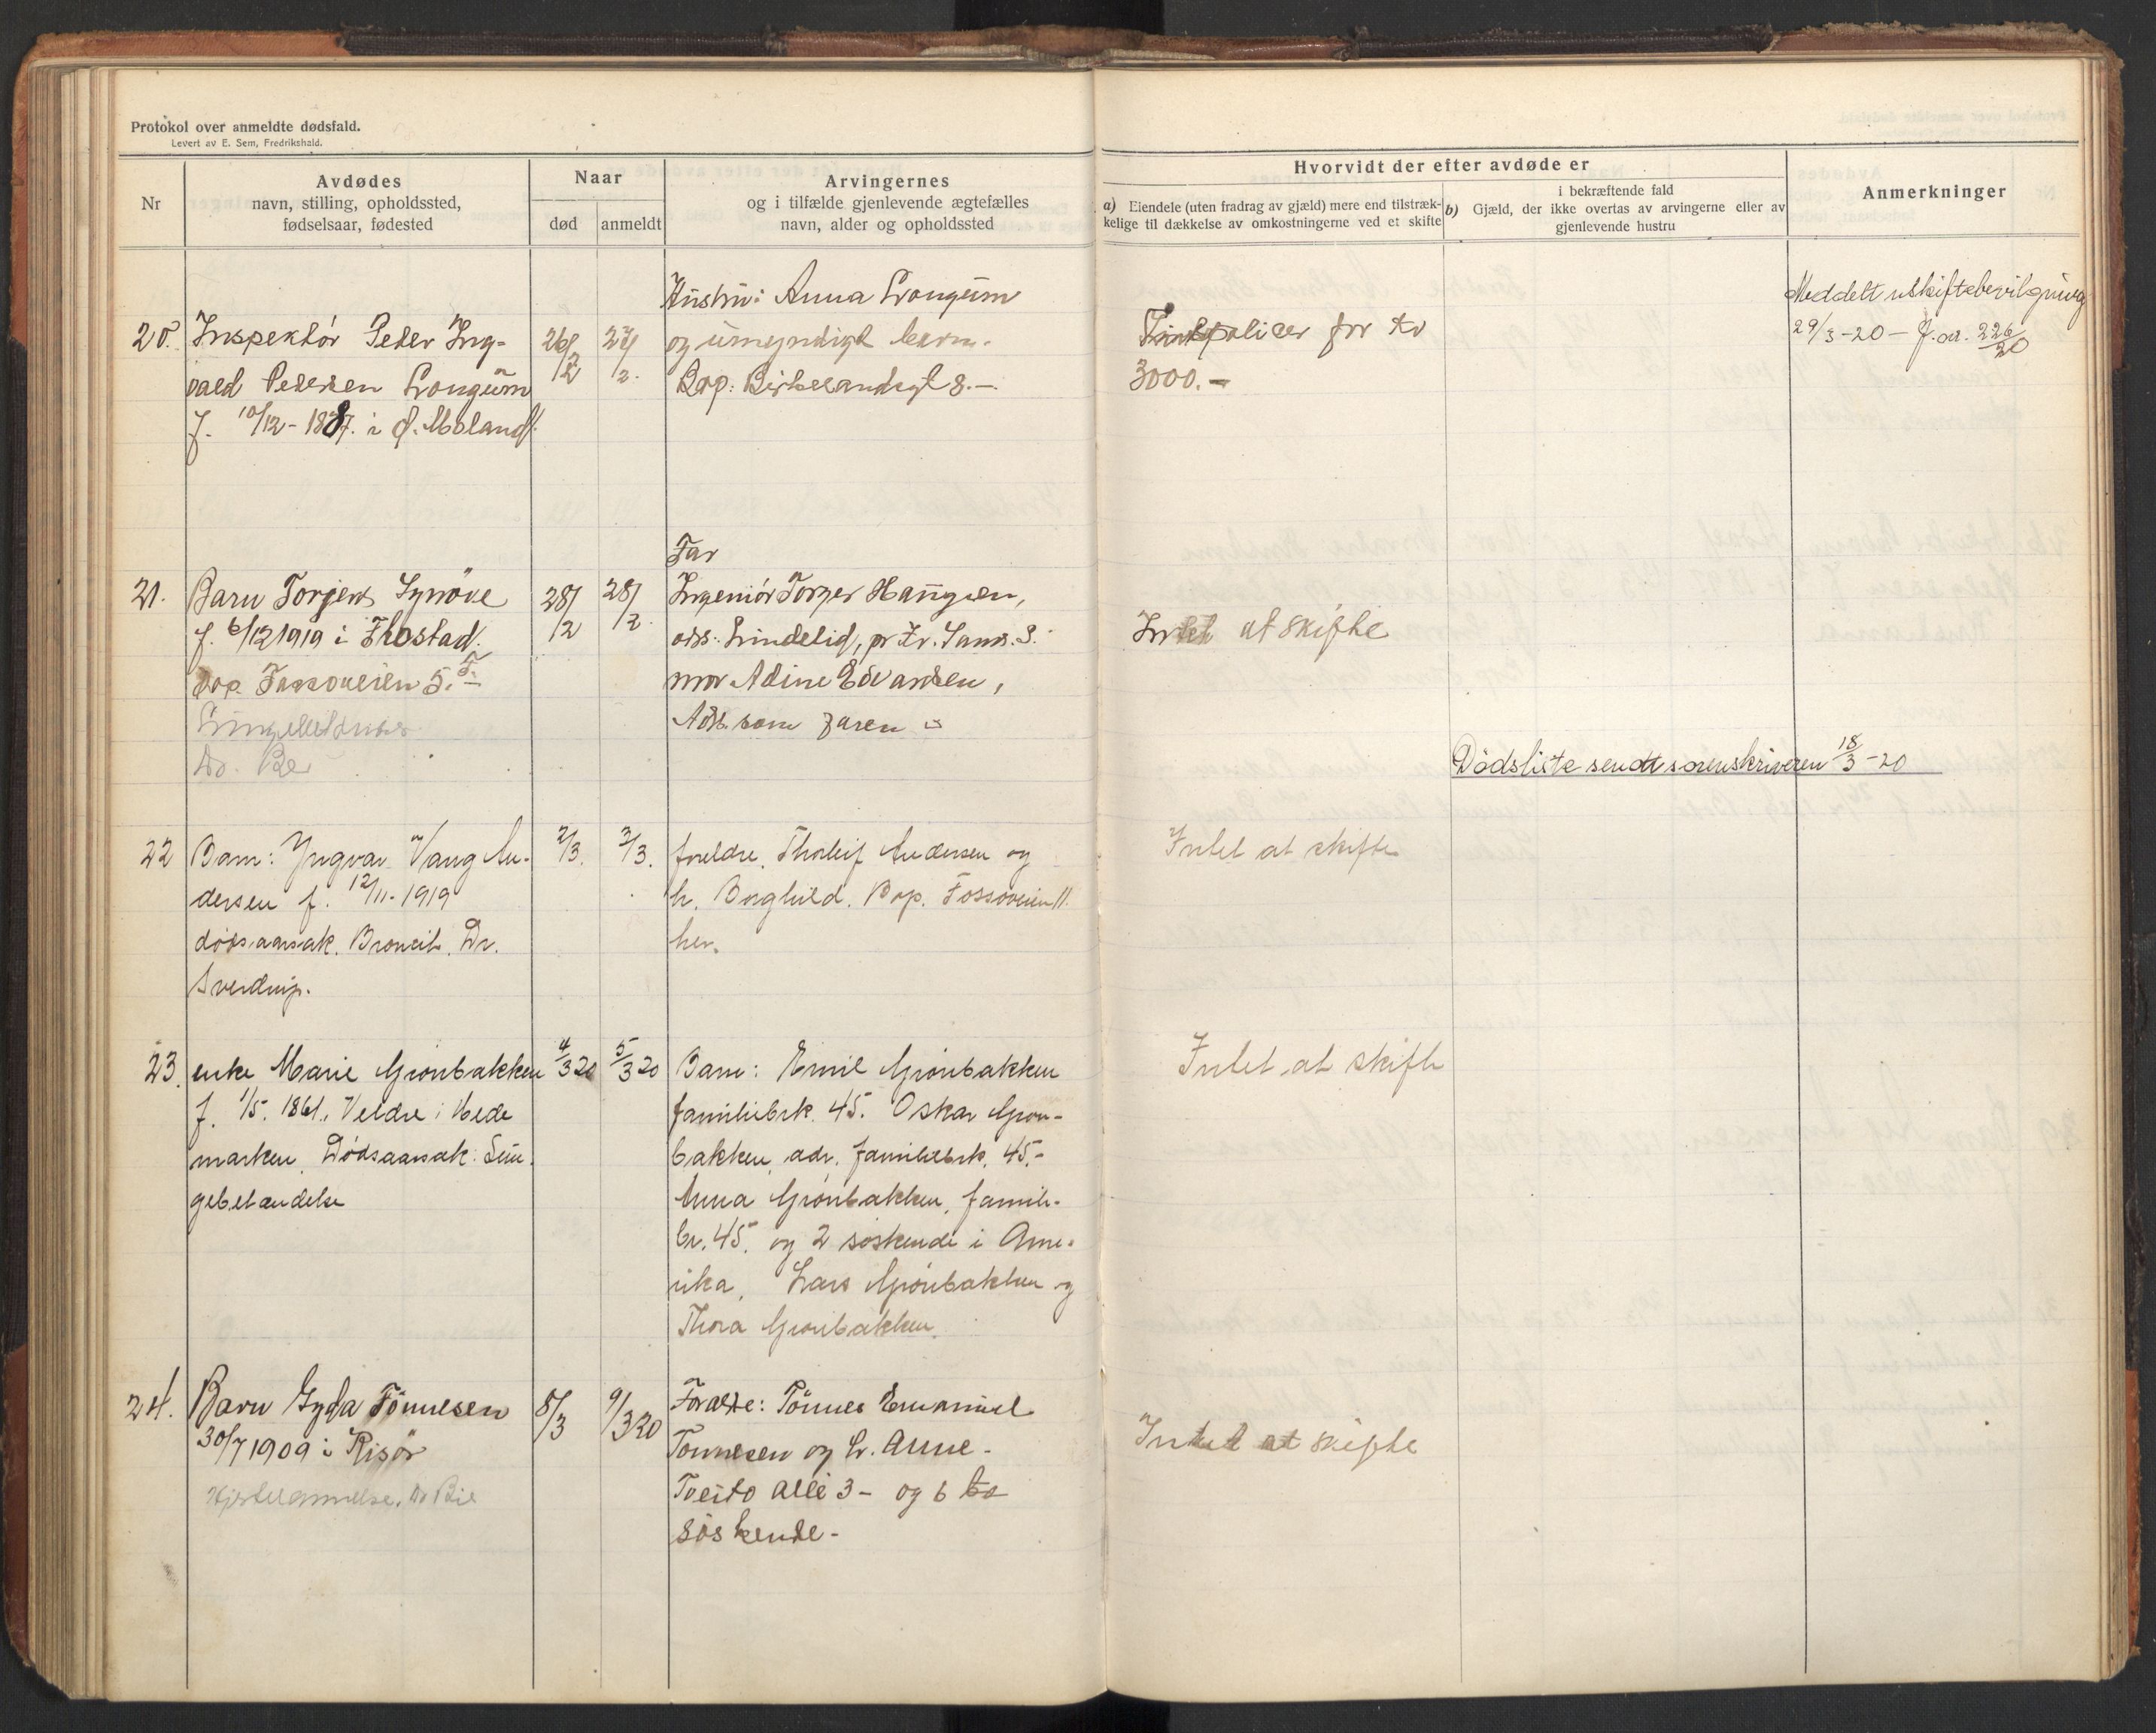 Protokol over anmeldte dødsfald.
Levert av E. Sem, Fredrikshald.
Nr
Avdødes
navn, stilling, opholdssted,
fødselsaar, fødested
Naar
død
anmeldt
Arvingernes
og i tilfælde gjenlevende ægtefælles
navn, alder og opholdssted
Hvorvidt der efter avdøde er
a) Eiendele (uten fradrag av gjæld) mere end tilstræk-
kelige til dækkelse av omkostningerne ved et skifte
i bekræftende fald
b) Gjæld, der ikke overtas av arvingerne eller av
gjenlevende hustru
Anmerkninger
20. Inspektör Peder Ing-
vald Pedersen Longum
f. 10/12-1887. i Ø. Moland.
26/2
27/2.
Hustru: Anna Longum
og umyndigt barn.
Bop: Birkelandsgt 8.-
policer for kr
3000.-
Meddelt uskiftebevilgning
29/3-20 - J. nr. 226/20
21. Barn Torjer Synöve
f. 6/12 1919 i
Bop Fossoveien 5.
Dr.
28/2
28/2.
Far
Ingeniör Torger Haugsen,
adr. Lindelid, pr Kr. Sand. S.
mor Adine Edvardsen,
Adr. som faren
Intet at skifte
Dødsliste sendt sorenskriveren 18/3-20
22 Barn: Yngvar Vang An-
dersen f. 12/11-1919
dødsaarsak. Dr.
Sverdrup.
2/3.
3/3.
foreldre. Thorleif Andersen og
h. Borghild. Bop. Fossoveien 11.
her.
Intet at skifte
23. enke Marie Grönbakken
f. 1/5. 1861., Veldre i Hede
marken. Dødsaarsak: Lun-
gebetændelse
4/3 20
5/3 20
Barn: Emil Grönbakken
familiebrk. 45. Oskar Grön-
bakken, adr. familiebrk. 45.-
Anna Grönbakken, famili-
br. 45. og 2 söskende i Ame-
rika, Lars Grönbakken og
Thora Grönbakken.
Intet at skifte
24. Barn Gyda Tönnesen
30/7 1909 i Risör
Dr Bie
8/3
9/3 20
Foræld­re: Tönnes Emanuel
Tönnesen og h. Anne-
Tveito Alle 3 - og 6
söskende -
Intet at skifte